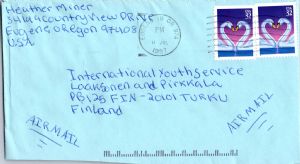 Heather Miner
Country View Drive
Eugene Oregon 97408
USA
PM
1997
32
32
International Youth Service
Laaksonen and Pirkkala
PB 125 FIN-20101 TURKU
Finland
AIRMAIL
AIRMAIL